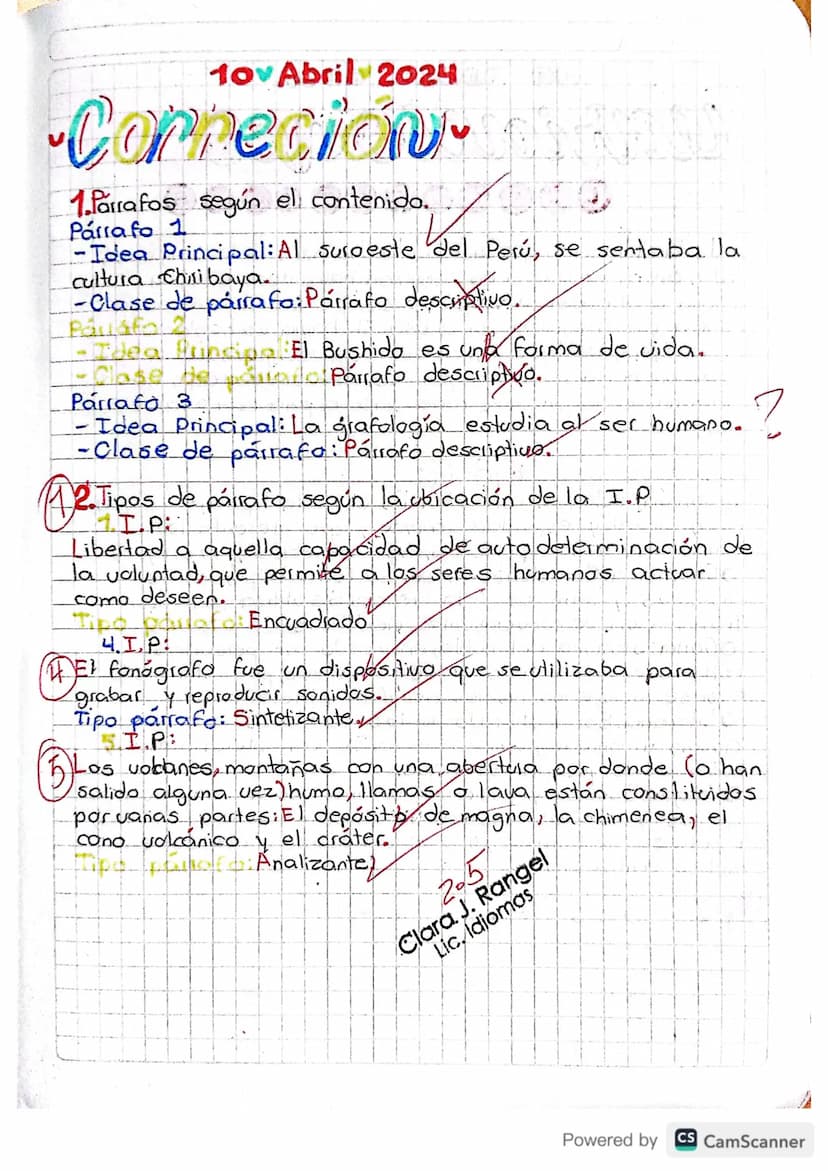 10 Abril 2024
Correción
1. Párrafos según el contenido.
Párrafo 1
- Idea Principal: Al suroeste del Perú, se sentaba la
cultura Chiribaya.
- Clase de párrafo: Párrafo descriptivo.
Párrafo 2
- Idea Principal: El Bushido es una forma de vida.
- Clase de párrafo: Párrafo descriptivo.
Párrafo 3
- Idea Principal: La grafología estudia al ser humano. ?
- Clase de párrafo: Párrafo descriptivo.
1 2. Tipos de párrafo según la ubicación de la I.P
1. I.P:
Libertad a aquella capacidad de autodeterminación de
la voluntad, que permite a los seres humanos actuar
como deseen.
Tipo párrafo: Encuadrado
4. I.P:
4 El fonógrafo fue un dispositivo que se utilizaba para
grabar y reproducir sonidos.
Tipo párrafo: Sintetizante.
5. I.P:
5 Los volcanes, montañas con una abertura por donde (o han
salido alguna vez) humo, llamas o lava están constituidos
por varias partes: El depósito de magna, la chimenea, el
cono volcánico y el cráter.
Tipo párrafo: Analizante
2.5
Clara J. Rangel
Lic. Idiomas
Powered by CS CamScanner